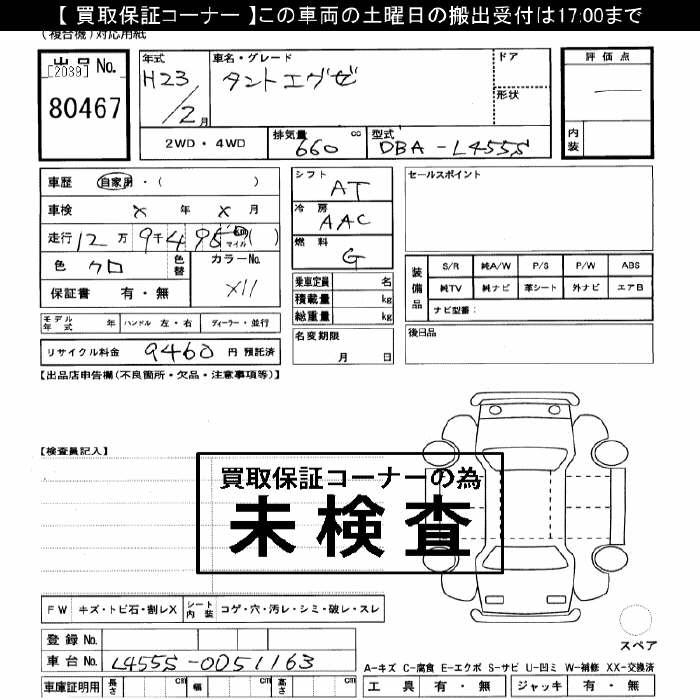 【 買取保証コーナー 】この車両の土曜日の搬出受付は17:00まで
(複合機)対応用紙
出品 No.
[2039]
80467
年式
H23
/2月
車名・グレード
タントエグゼ
ドア
形状
評価点
内装
2WD・4WD
排気量 660 cc
型式 DBA-L455S
車歴 自家用・( )
車検 × 年 × 月
走行 12万 9千4
km マイル ( )
色 クロ
色替
カラーNo.
X11
保証書 有・無
シフト AT
冷房 AAC
燃料 G
乗車定員 名
積載量 kg
総重量 kg
セールスポイント
装備品
S/R 純A/W P/S P/W ABS
純TV 純ナビ 革シート 外ナビ エアB
ナビ型番：
モデル年式 年 ハンドル 左・右 ディーラー・並行
リサイクル料金 9460 円 預託済
名変期限 月 日
後日品
【出品店申告欄(不良箇所・欠品・注意事項等)】
【検査員記入】
買取保証コーナーの為
未検査
FW キズ・トビ石・割レX シート内装 コゲ・穴・汚レ・シミ・破レ・スレ
登録 No.
車台 No. L455S-0051163
車庫証明用 長さ cm 幅 cm 高さ cm
スペア
A-キズ C-腐食 E-エクボ S-サビ U-凹ミ W-補修 XX-交換済
工具 有・無 ジャッキ 有・無